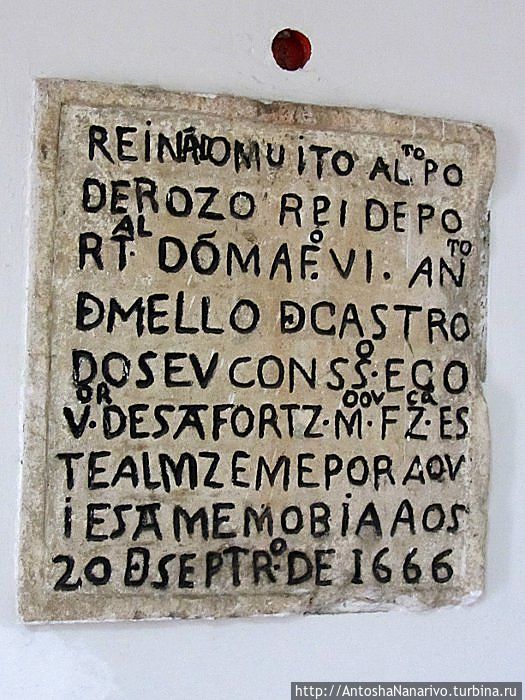 REINÃDOMUITO ALTO PO
DEROZO REI DEPO
RT.AL DÕMAF.O VI. ANTO
DMELLO DCASTRO
DOSEV CONSS.O EGO
V.OR DESAFORTZ. MOOV. FZ.ÇA ES
TEALMZEMEPOR AQV
IESA MEMOBIAAOS
20 DSEPTR.O DE 1666
http://AntoshaNanarivo.turbina.ru